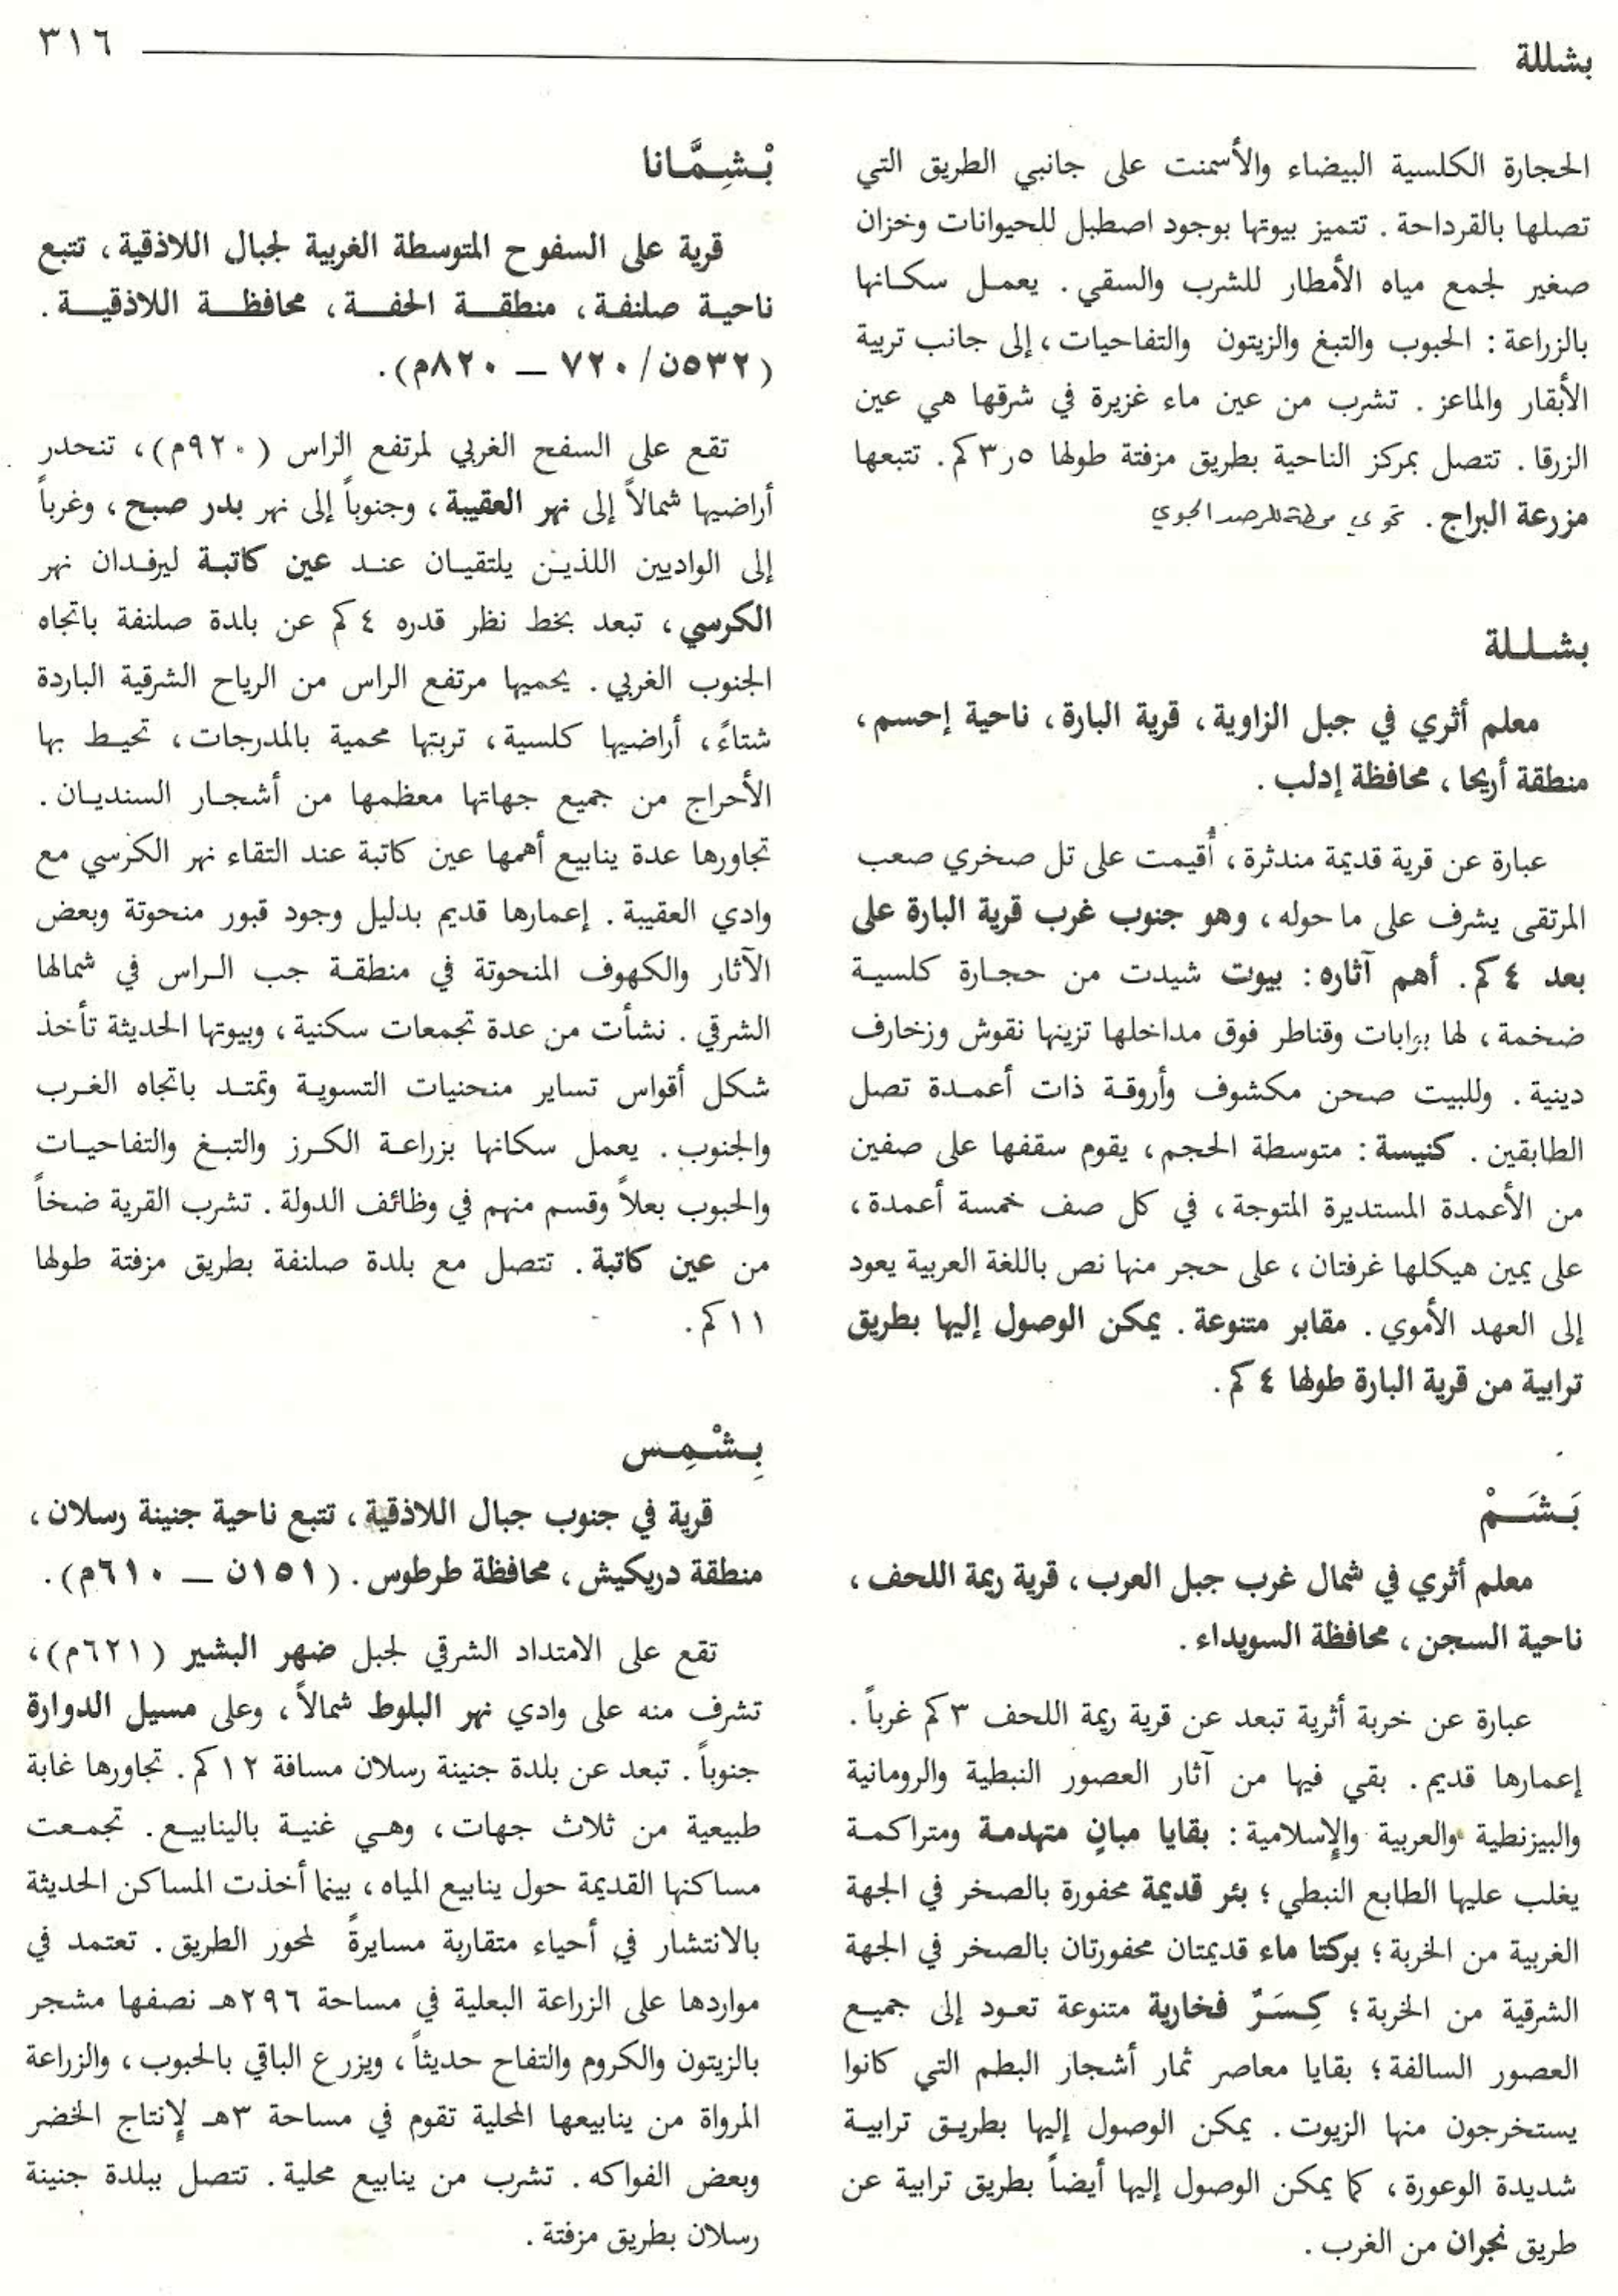 بشللة
٣١٦
الحجارة الكلسية البيضاء والأسمنت على جانبي الطريق التي
تصلها بالقرداحة . تتميز بيوتها بوجود اصطبل للحيوانات وخزان
صغير لجمع مياه الأمطار للشرب والسقي . يعمل سكانها
بالزراعة : الحبوب والتبغ والزيتون والتفاحيات ، إلى جانب تربية
الأبقار والماعز . تشرب من عين ماء غزيرة في شرقها هي عين
الزرقا . تتصل بمركز الناحية بطريق مزفتة طولها ٥ر٣ كم . تتبعها
مزرعة البراج . تحوي محطة للرصد الجوي
بشللة
معلم أثري في جبل الزاوية ، قرية البارة ، ناحية إحسم ،
منطقة أريحا ، محافظة إدلب .
عبارة عن قرية قديمة مندثرة ، أُقيمت على تل صخري صعب
المرتقى يشرف على ما حوله ، وهو جنوب غرب قرية البارة على
بعد ٤ كم . أهم آثاره : بيوت شيدت من حجارة كلسية
ضخمة ، لها بوابات وقناطر فوق مداخلها تزينها نقوش وزخارف
دينية . وللبيت صحن مكشوف وأروقة ذات أعمدة تصل
الطابقين . كنيسة : متوسطة الحجم ، يقوم سقفها على صفين
من الأعمدة المستديرة المتوجة ، في كل صف خمسة أعمدة ،
على يمين هيكلها غرفتان ، على حجر منها نص باللغة العربية يعود
إلى العهد الأموي . مقابر متنوعة . يمكن الوصول إليها بطريق
ترابية من قرية البارة طولها ٤ كم .
بَشَمْ
معلم أثري في شمال غرب جبل العرب ، قرية ريمة اللحف ،
ناحية السجن ، محافظة السويداء .
عبارة عن خربة أثرية تبعد عن قرية ريمة اللحف ٣ كم غرباً .
إعمارها قديم . بقي فيها من آثار العصور النبطية والرومانية
والبيزنطية والعربية والإسلامية : بقايا مبانٍ متهدمة ومتراكمة
يغلب عليها الطابع النبطي ؛ بئر قديمة محفورة بالصخر في الجهة
الغربية من الخربة ؛ بركتا ماء قديمتان محفورتان بالصخر في الجهة
الشرقية من الخربة ؛ كِسَرٌ فخارية متنوعة تعود إلى جميع
العصور السالفة ؛ بقايا معاصر ثمار أشجار البطم التي كانوا
يستخرجون منها الزيوت . يمكن الوصول إليها بطريق ترابية
شديدة الوعورة ، كما يمكن الوصول إليها أيضاً بطريق ترابية عن
طريق نجران من الغرب .
بْشِمَّانا
قرية على السفوح المتوسطة الغربية لجبال اللاذقية ، تتبع
ناحية صلنفة ، منطقة الحفة ، محافظة اللاذقية .
(٥٣٢ن/٧٢٠ – ٨٢٠م).
تقع على السفح الغربي لمرتفع الراس (٩٢٠م) ، تنحدر
أراضيها شمالاً إلى نهر العقيبة ، وجنوباً إلى نهر بدر صبح ، وغرباً
إلى الواديين اللذين يلتقيان عند عين كاتبة ليرفدان نهر
الكرسي ، تبعد بخط نظر قدره ٤ كم عن بلدة صلنفة باتجاه
الجنوب الغربي . يحميها مرتفع الراس من الرياح الشرقية الباردة
شتاءً ، أراضيها كلسية ، تربتها محمية بالمدرجات ، تحيط بها
الأحراج من جميع جهاتها معظمها من أشجار السنديان .
تجاورها عدة ينابيع أهمها عين كاتبة عند التقاء نهر الكرسي مع
وادي العقيبة . إعمارها قديم بدليل وجود قبور منحوتة وبعض
الآثار والكهوف المنحوتة في منطقة جب الراس في شمالها
الشرقي . نشأت من عدة تجمعات سكنية ، وبيوتها الحديثة تأخذ
شكل أقواس تساير منحنيات التسوية وتمتد باتجاه الغرب
والجنوب . يعمل سكانها بزراعة الكرز والتبغ والتفاحيات
والحبوب بعلاً وقسم منهم في وظائف الدولة . تشرب القرية ضخاً
من عين كاتبة . تتصل مع بلدة صلنفة بطريق مزفتة طولها
١١ كم .
بِشْمِس
قرية في جنوب جبال اللاذقية ، تتبع ناحية جنينة رسلان ،
منطقة دريكيش ، محافظة طرطوس . (١٥١ن – ٦١٠م).
تقع على الامتداد الشرقي لجبل ضهر البشير (٦٢١م) ،
تشرف منه على وادي نهر البلوط شمالاً ، وعلى مسيل الدوارة
جنوباً . تبعد عن بلدة جنينة رسلان مسافة ١٢ كم . تجاورها غابة
طبيعية من ثلاث جهات ، وهي غنية بالينابيع . تجمعت
مساكنها القديمة حول ينابيع المياه ، بينما أخذت المساكن الحديثة
بالانتشار في أحياء متقاربة مسايرةً لمحور الطريق . تعتمد في
مواردها على الزراعة البعلية في مساحة ٢٩٦هـ نصفها مشجر
بالزيتون والكروم والتفاح حديثاً ، ويزرع الباقي بالحبوب ، والزراعة
المرواة من ينابيعها المحلية تقوم في مساحة ٣هـ لإنتاج الخضر
وبعض الفواكه . تشرب من ينابيع محلية . تتصل ببلدة جنينة
رسلان بطريق مزفتة .